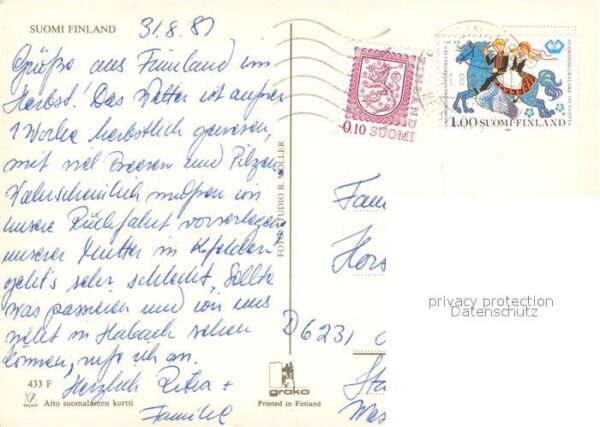 SUOMI FINLAND
31.8.81
Grüße aus Finnland im
Herbst! Das Wetter ist außer
1 Woche herbstlich gewesen,
mit viel Beeren und Pilzen.
Wahrscheinlich müssen wir
unsere Rückfahrt vorverlegen,
unserer Mutter in
geht's sehr schlecht. Sollte
was passieren und wir uns
nicht in Habach sehen
können, rufe ich an.
Herzlich Petra +
Familie
433 F
Aito suomalainen kortti
FOTO STUDIO B. MÖLLER
grako
Printed in Finland
0.10 SUOMI
FINLAND
1.00 SUOMI-FINLAND
Fam
Hors
D 6231
privacy protection
Datenschutz